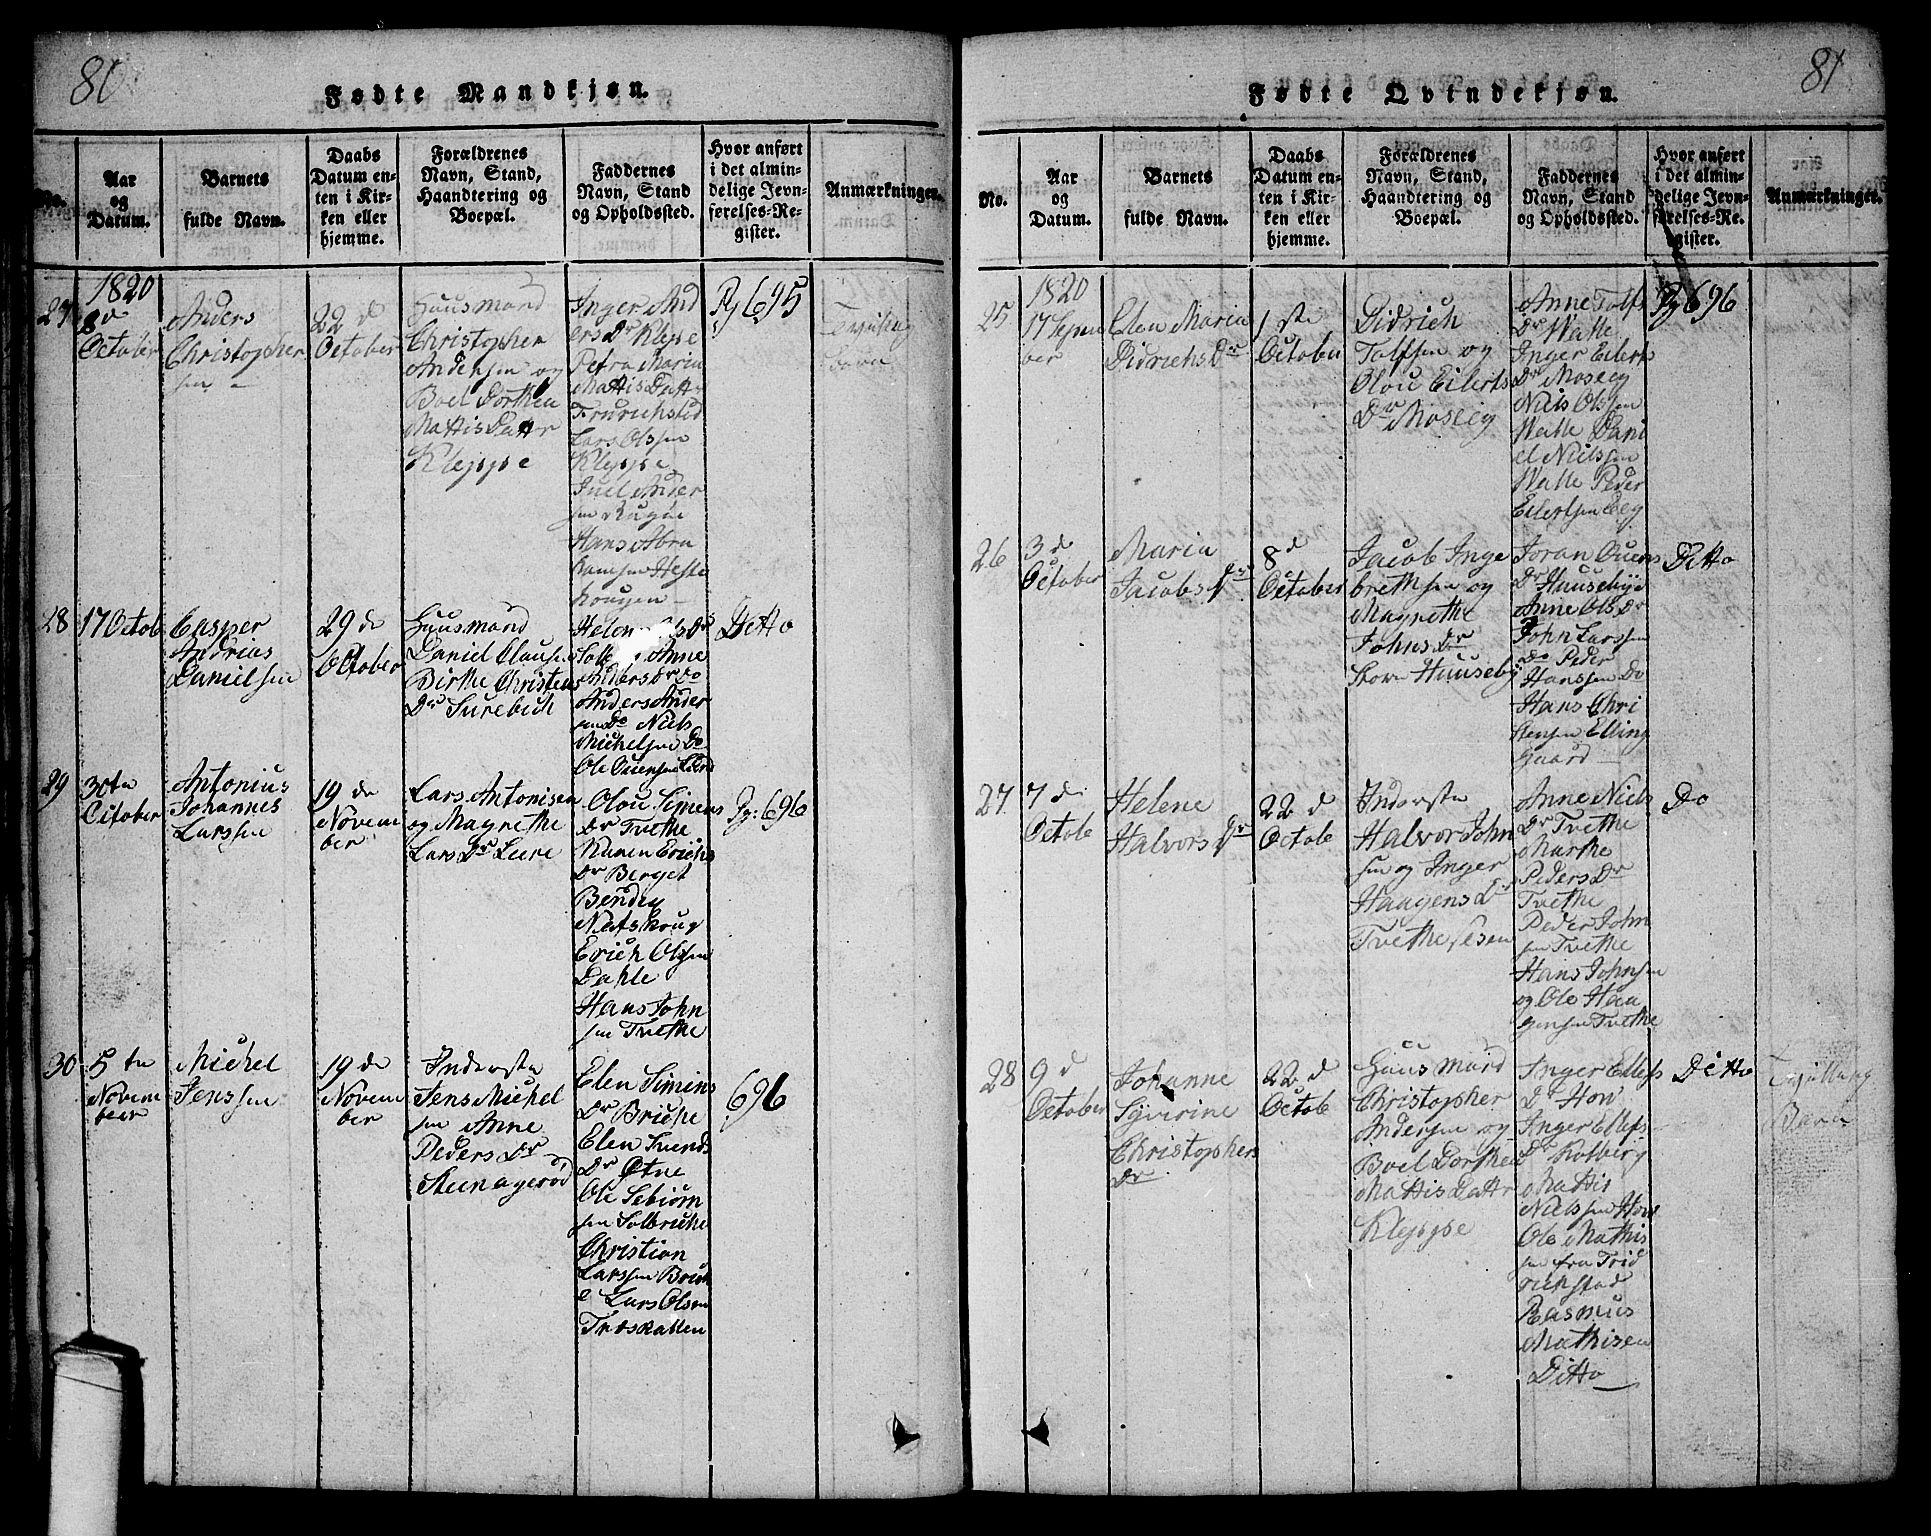 80
Fødte Mandkjøn.
No.
Aar
og
Datum.
Barnets
fulde Navn.
Daabs
Datum en-
ten i Kir-
ken eller
hjemme.
Forældrenes
Navn, Stand,
Haandtering og
Boepæl.
Faddernes
Navn, Stand
og Opholdssted.
Hvor anført
i det almin-
delige Jevn-
førelses-Re-
gister.
Anmærkninger.
27
1820
8d
October
Anders
Christopher
sen
22 d
October
Huusmand
Christopher
Andersen og
Boel Dorthea
Mattis Dattr
Kleppe
Inger And
ers Dr Kleppe
Petra Maria
Mattis Datt
Lars Olssen
Kleppe
Juel Ander
sen
Hans Abra
hamsen Heste
hougen
Pg 695
28
17 Octob
Casper
Andrias
Danielsen
29 de
October
Huusmand
Daniel Clausen
Birthe Christens
Dr Surebuch
Anne
Anders Dr Do
Anders Ander
sen Do Niels
Michelsen Do
Ole Ouensen
Ditto
29
30te
October
Antonius
Johannes
Larssen
19 de
Novem
ber
Lars Antonisen
og Magrethe
Lars Dr Leere
Olou Simens
Dr Tvethe
Karen Erichs
Dr Berget
Bendig
Netshoug
Erich Olssen
Dahle
Hans John
sen Tvethe
Pg: 696
30
5 te
Novem
ber
Michel
Jenssen
19 de
Novem
ber
Inderste
Jens Michel
sen Anne
Peders Dr
Steenagerød
Elen Simins
Dr Briche
Elen Svends
Dr Østne
Ole Sebiørn
sen Solbriche
Christian
Larssen Brich
e Lars Olsen
Træskallen
696
81
Fødte Qvindekjøn.
No.
Aar
og
Datum.
Barnets
fulde Navn.
Daabs
Datum en-
ten i Kir-
ken eller
hjemme.
Forældrenes
Navn, Stand,
Haandtering og
Boepæl.
Faddernes
Navn, Stand
og Opholdssted.
Hvor anført
i det almin-
delige Jevn-
førelses-Re-
gister.
Anmærkninger.
25
1820
17 Septem
ber
Elen Maria
Didrichs Dr
1 ste
October
Didrich
Tolfsen og
Olou Eilerts
Dr Moseig
Anne Tolfs
Dr Walle
Inger Eilerts
Dr Moseig
Niels Olssen
Walle Dani
el Nielsen
Walle Peder
Eilertsen Eeg
Pg 696
26
3 d
October
Maria
Jacobs Dr
8 d
October
Jacob Inge
brethsen og
Magrethe
Johns Dr
Store Huuseby
Joran Ouens
Dr Huusebye
Anne Ols Dr
John Larssen
Do Peder
Hanssen Do
Hans Chri
stensen Elling
gaard
Ditto
27
7 d
Octob
Helene
Halvors Dr
22 d
Octob
Inderste
Halvor John
sen og Inger
Haagens Dr
Tvethe
Anne Niels
Dr Tvethe
Marthe
Peders Dr
Tvethe
Peder John
sen Tvethe
Hans Johnsen
og Ole Haa
gensen Tvethe
Do
28
9 d
October
Johanne
Syverine
Christophers
Dr
22 d
Octob
Huusmand
Christopher
Andersen og
Boel Dorthea
Mattis Dattr
Kleppe
Inger Ellefs
Dr Hov
Inger Ellefs
Dr Kolberg
Mattis
Nielssen Hov
Ole Mathis
sen fra Frid
richstad
Rasmus
Mathisen
Ditto
Ditto
Tvilling
Børn